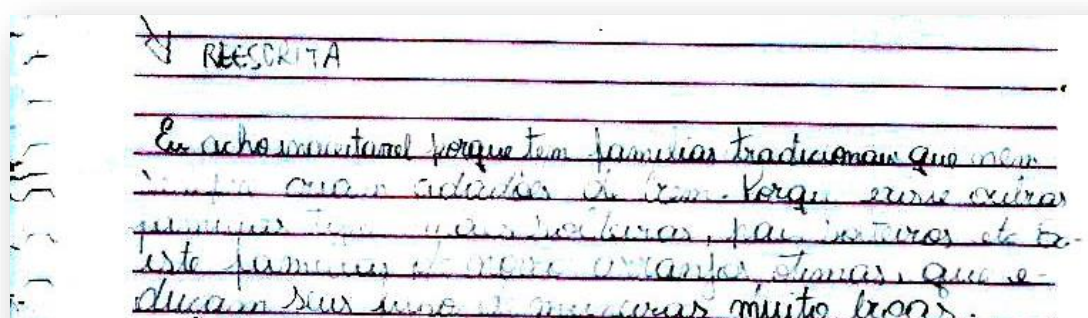 REESCRITA
Eu acho inaceitavel porque tem familias tradicionais que nem
sempre criam cidadões de bem. Porqu existe outras
mães solteiras, pais solteiros etc Ex-
iste familias arranjos otimas, que e-
ducam seus muito boas.